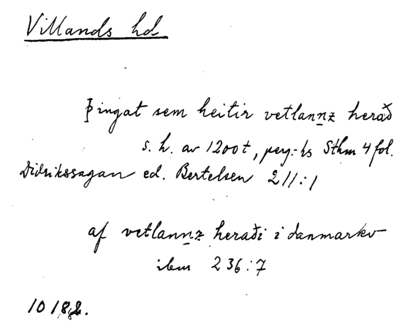 Villands hd
Þingat sem heitir vetlannz herað
s. h. av 1200 t, perg.-hs Sthm 4 fol.
Didrikssagan ed. Bertelsen 211:1
af vetlannz heraði i danmarkv
ibm 236:7